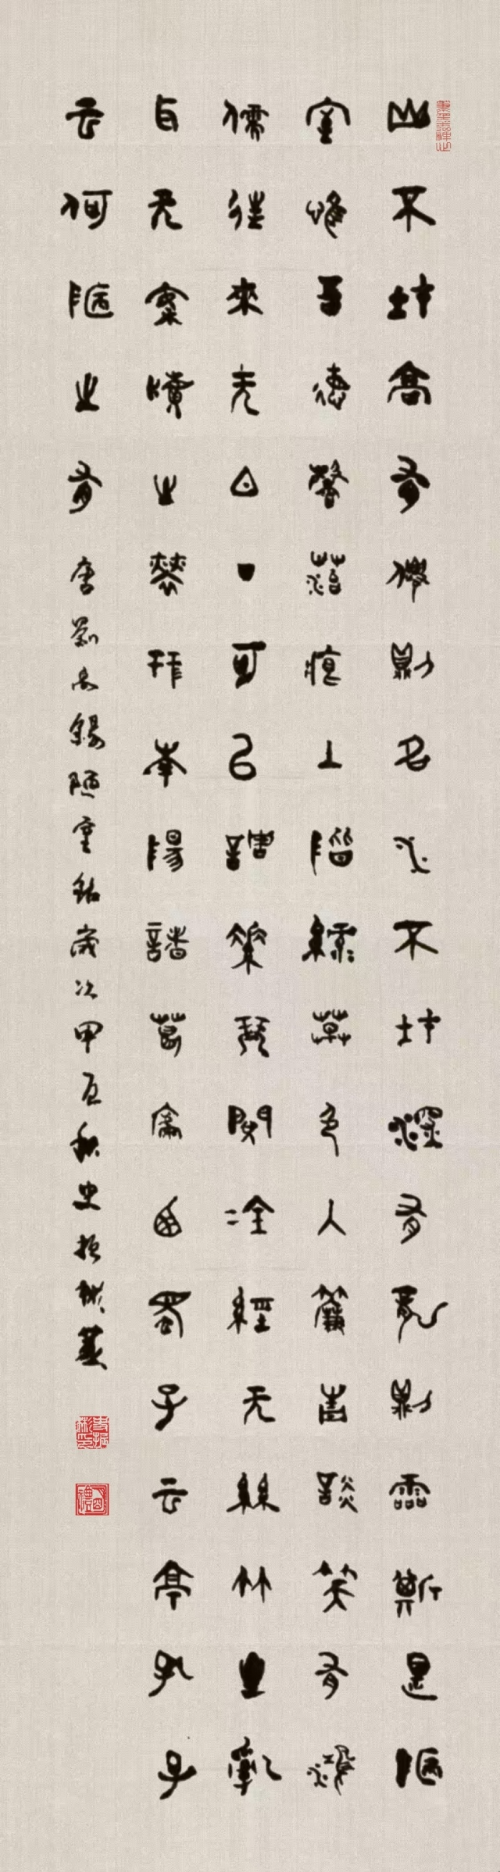 山不在高有僊則名水不在深有龍則靈斯是陋
室唯吾德馨苔痕上階綠草色入簾青談笑有鴻
儒往來无白丁可以調素琴閱金經无絲竹之亂
耳无案牘之勞形南陽諸葛廬西蜀子云亭孔子
云何陋之有
唐劉禹錫陋室銘歲次甲辰秋史振彬篆